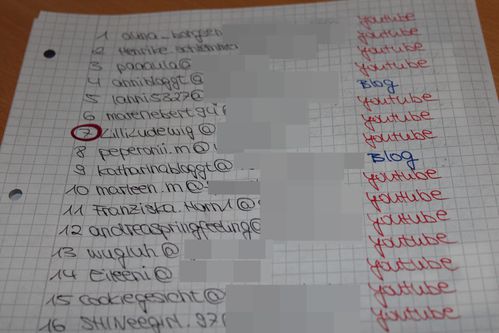 1 anna_ youtube
2 Henrike youtube
3 paoaula@ youtube
4 annibloggt@ Blog
5 lanni5327@ youtube
6 marenebert.gu youtube
7 lilliludewig@ youtube
8 peperonii.m@ Blog
9 katharinabloggt@ youtube
10 marleen.m@ youtube
11 Franziska.Horn1@ youtube
12 andreaspringfedung@ youtube
13 wugluh@ youtube
14 eireeni@ youtube
15 cookiegesicht@ youtube
16 SHINeegirl.97@ youtube